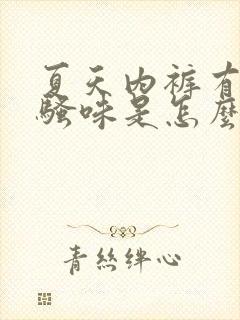 夏天内裤有
骚味是怎麽
青丝绊心